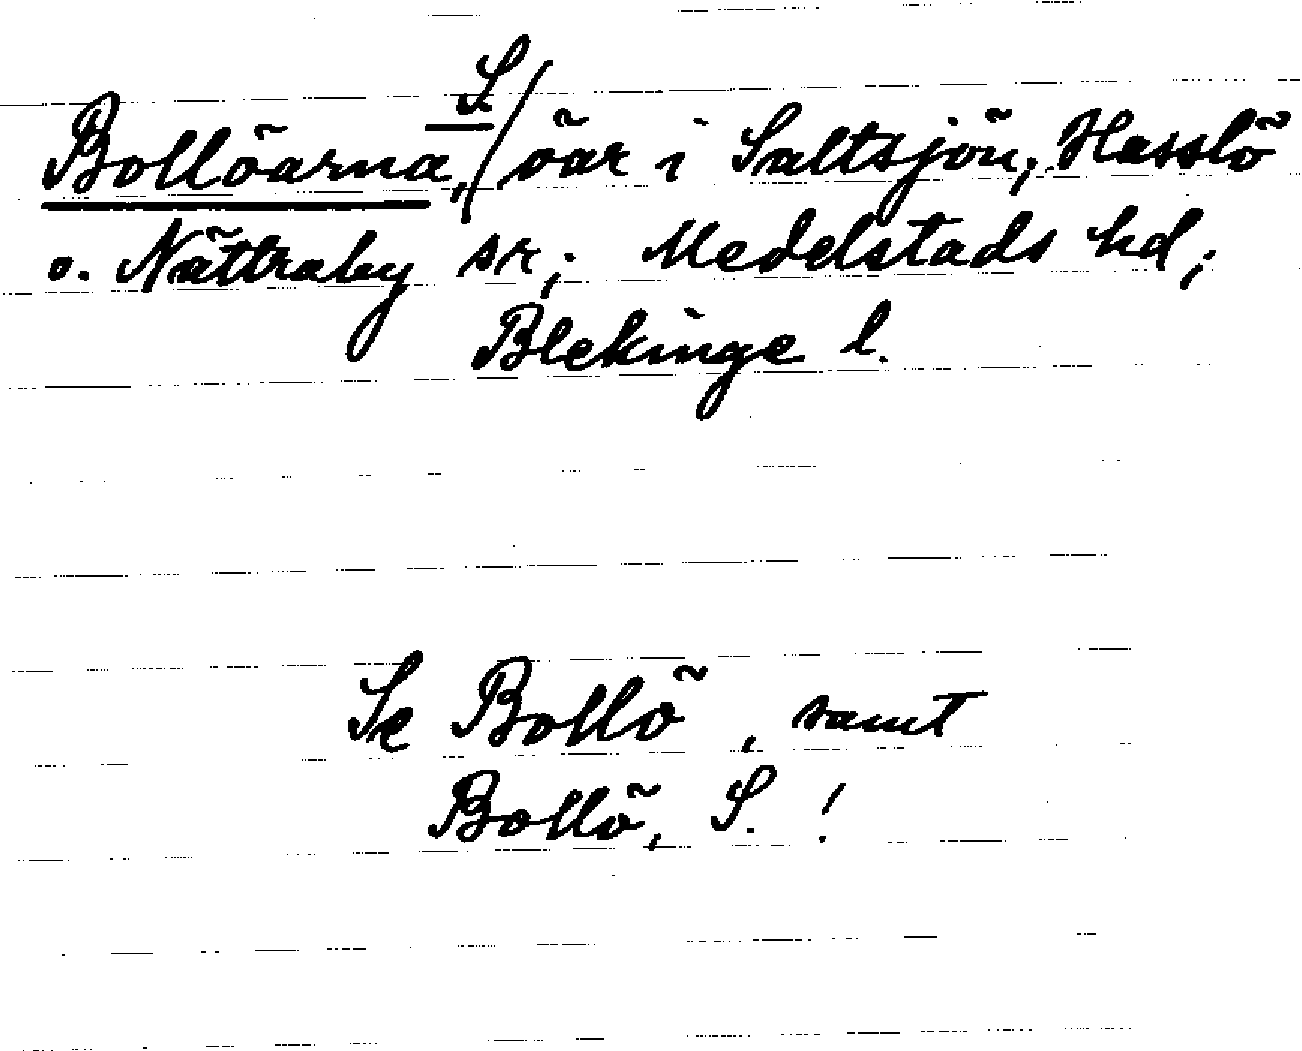 Bollöarna, S. / öar i Saltsjön; Hasslö
o. Nättraby sn; Medelstads hd;
Blekinge l.
Se Bollö, samt
Bollö, S. !